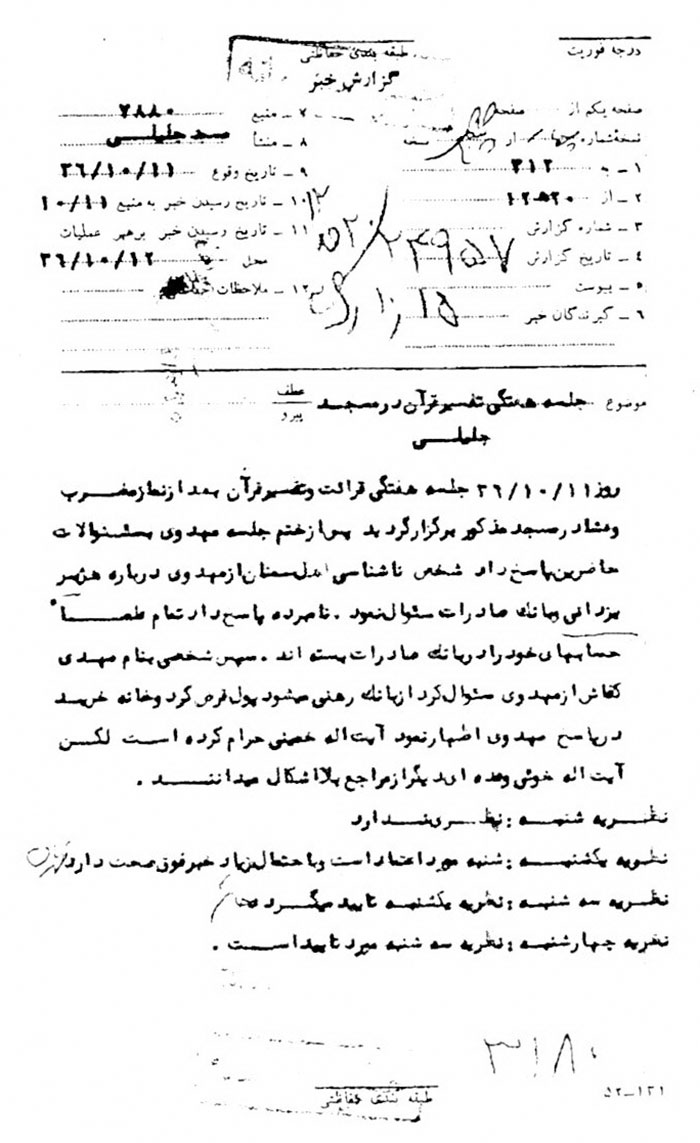 درجه فوریت
طبقه بندی حفاظتی
گزارش خبر
صفحه یکم از صفحه
نسخه شماره از نسخه
۱ ـ به ۳۱۲
۲ ـ از
۳ ـ شماره گزارش
۴ ـ تاریخ گزارش
۵ ـ پیوست
۶ ـ گیرندگان خبر
۷ ـ منبع ۷۸۸۰
۸ ـ منشأ مسجد جلیلی
۹ ـ تاریخ وقوع ۳۶/۱۰/۱۱
۱۰ ـ تاریخ رسیدن خبر به منبع ۱۰/۱۱
۱۱ ـ تاریخ رسیدن خبر برهبر عملیات
محل ۳۶/۱۰/۱۲
۱۲ ـ ملاحظات حفاظتی
موضوع جلسه هفتگی تفسیر قرآن در مسجد عطف پیرو
جلیلی
روز ۳۶/۱۰/۱۱ جلسه هفتگی قرائت و تفسیر قرآن بعد از نماز مغرب
و عشاء در مسجد مذکور برگزار گردید پس از ختم جلسه مهدوی به سئوالات
حاضرین پاسخ داد شخص ناشناسی اهل سمنان از مهدوی درباره هژبر
یزدانی و بانک صادرات سئوال نمود . نامبرده پاسخ داد تمام علماء
حسابهای خود را در بانک صادرات بسته اند . سپس شخصی بنام مهدی
کفاش از مهدوی سئوال کرد از بانک رهنی میشود پول قرض کرد و خانه خرید
در پاسخ مهدوی اظهار نمود آیت اله خمینی حرام کرده است لکن
آیت اله خوئی و عده ای دیگر از مراجع بلا اشکال میدانند .
نظریه شنبه : نظری ندارد
نظریه یکشنبه : شنبه مورد اعتماد است و با احتمال زیاد خبر فوق صحت دارد
نظریه سه شنبه : نظریه یکشنبه تایید میگردد
نظریه چهارشنبه : نظریه سه شنبه مورد تایید است .
۳۱۸۰
طبقه بندی حفاظتی
۵۲ـ۱۲۱